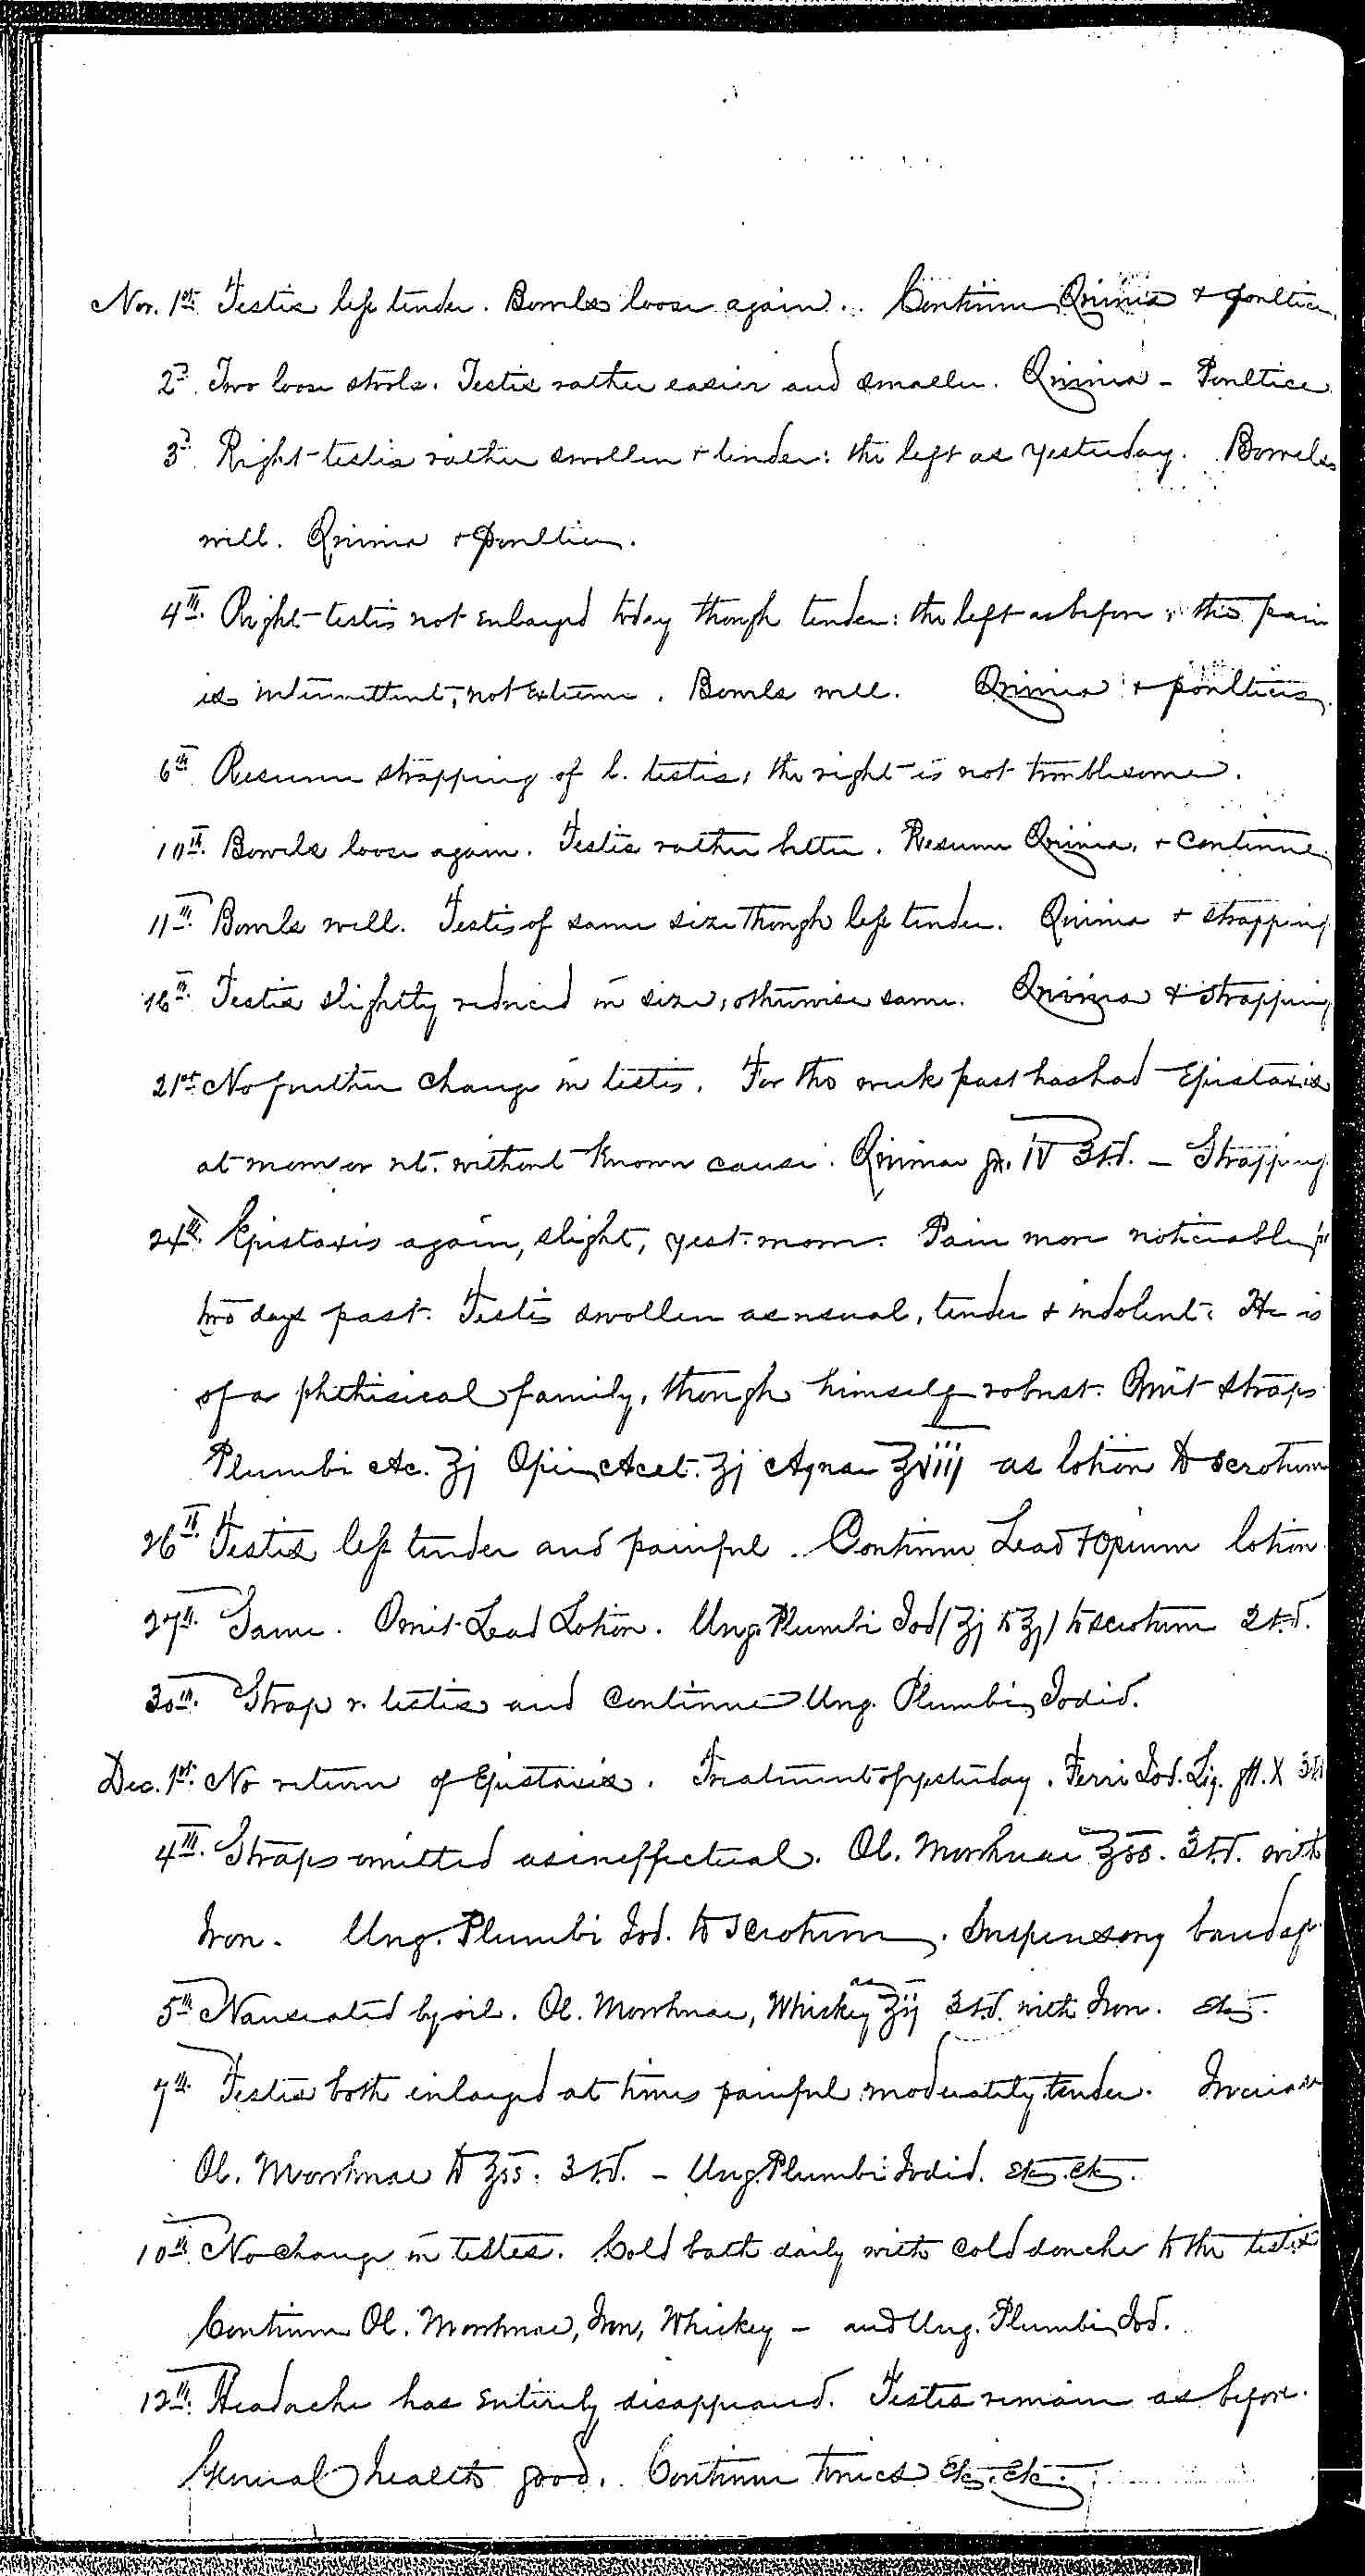 Nov. 1st. Testis less tender. Bowels loose again. Continue Quinia & poultice.
2d. Two loose stools. Testis rather easier and smaller. Quinia - Poultice
3d. Right testis rather swollen & tender: the left as yesterday. Bowels
well. Quinia & poultice.
4th. Right testis not enlarged today though tender: the left as before, the pain
is intermittent, not extreme. Bowels well. Quinia & poultices.
6th. Resume strapping of l. testis, the right is not troublesome.
10th. Bowels loose again. Testis rather better. Resume Quinia, & continue
11th. Bowels well. Testis of same size though less tender. Quinia & strapping
16th. Testis slightly reduced in size, otherwise same. Quinia & strapping
21st. No further change in testis. For the week past has had Epistaxis
at morn or nt. without known cause. Quinia gr. IV 3t.d. - Strapping
24th. Epistaxis again, slight, yest. morn. Pain more noticeable
two days past. Testis swollen as usual, tender & indolent. He is
of a phthisical family, though himself robust. Omit straps
Plumbi Ac. ʒj Opii Acet. ʒj Aquae ʒviij as lotion to scrotum
26th. Testis less tender and painful. Continue Lead & Opium lotion
27th. Same. Omit Lead Lotion. Ung. Plumbi Iod (ʒj to ℥j) to scrotum 2t.d.
30th. Strap r. testis and continue Ung. Plumbi Iodid.
Dec. 1st. No return of Epistaxis. Treatment of yesterday. Ferri Iod. Liq. gtt. X 3t.d
4th. Straps omitted as ineffectual. Ol. Morrhuae ℥ss. 3t.d. with
Iron. Ung. Plumbi Iod. to scrotum. Suspensory bandage
5th. Nauseated by oil. Ol. Morrhuae, Whiskey aa ʒij 3t.d. with Iron. etc.
7th. Testes both enlarged at times painful moderately tender. Increase
Ol. Morrhuae to ℥ss. 3t.d. - Ung. Plumbi Iodid. etc. etc.
10th. No change in testes. Cold bath daily with cold douche to the testes
Continue Ol. Morrhuae, Iron, Whiskey - and Ung. Plumbi Iod.
12th. Headache has entirely disappeared. Testes remain as before.
General health good. Continue tonics etc. etc.